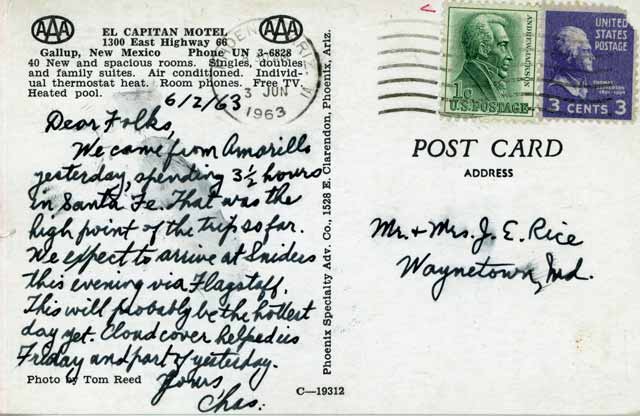 AAA
AAA
EL CAPITAN MOTEL
1300 East Highway 66
Gallup, New Mexico Phone UN 3-6828
40 New and spacious rooms. Singles, doubles
and family suites. Air conditioned. Individ-
ual thermostat heat. Room phones. Free TV.
Heated pool.
3 JUN
1963
6/2/63
Dear Folks,
We came from Amarillo
yesterday, spending 3½ hours
in Santa Fe. That was the
high point of the trip so far.
We expect to arrive at Sniders
this evening via Flagstaff.
This will probably be the hottest
day yet. Cloud cover helped us
Friday and part of yesterday.
Yours,
Chas.
Photo by Tom Reed
Phoenix Specialty Adv. Co., 1528 E. Clarendon, Phoenix, Ariz.
C—19312
ANDREW JACKSON
1c
U.S. POSTAGE
UNITED
STATES
POSTAGE
THOMAS
JEFFERSON
3 CENTS 3
POST CARD
ADDRESS
Mr. + Mrs. J. E. Rice
Waynetown, Ind.